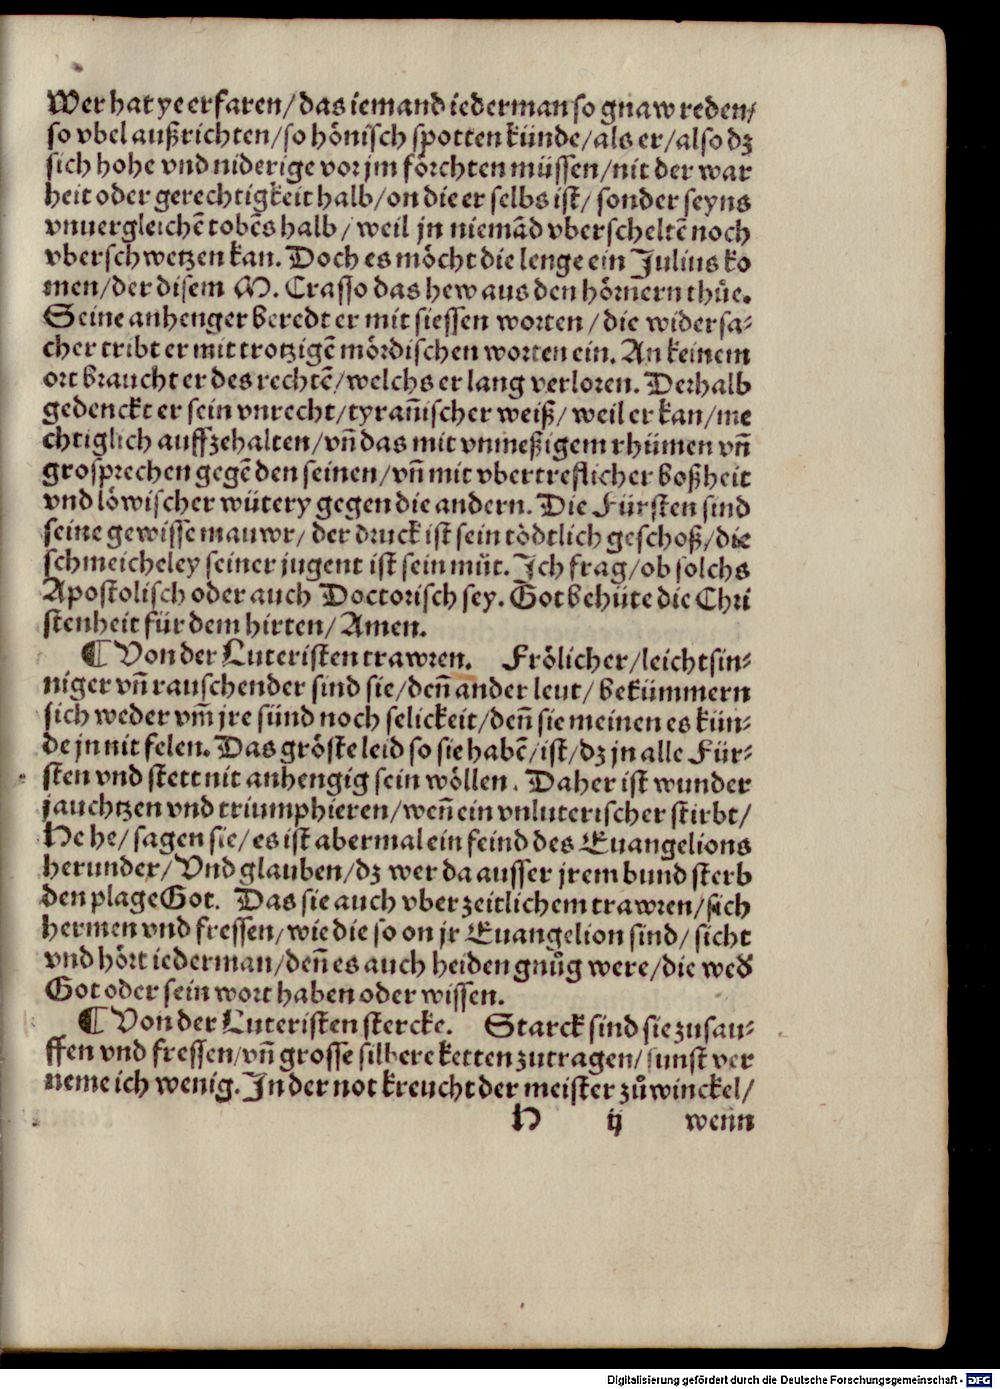 Wer hat ye erfaren/das iemand iederman so gnaw reden/
so vbel außrichten/so hönisch spotten künde/als er/also dz
sich hohe vnd niderige vor jm förchten müssen/nit der war
heit oder gerechtigkeit halb/on die er selbs ist/sonder seyns
vnuergleichē tobēs halb/weil jn niemād vberscheltē noch
vberschwetzen kan. Doch es möcht die lenge ein Julius ko
men/der disem M. Crasso das hew aus den hörnern thüe.
Seine anhenger beredt er mit siessen worten/die widersa⸗
cher tribt er mit trotzigē mördischen worten ein. An keinem
ort braucht er des rechtē/welchs er lang verloren. Derhalb
gedenckt er sein vnrecht/tyrañischer weiß/weil er kan/me
chtiglich auffzehalten/vñ das mit vnmeßigem rhümen vñ
grosprechen gegē den seinen/vñ mit vbertreflicher boßheit
vnd löwischer wütery gegen die andern. Die Fürsten sind
seine gewisse mauwr/der druck ist sein tödtlich geschoß/die
schmeicheley seiner jugent ist sein müt. Ich frag/ob solchs
Apostolisch oder auch Doctorisch sey. Got behüte die Chri
stenheit für dem hirten/Amen.
¶ Von der Luteristen trawren. Frölicher/leichtsin⸗
niger vñ rauschender sind sie/deñ ander leut/bekümmern
sich weder vm̃ jre sünd noch selickeit/deñ sie meinen es kün⸗
de jn nit felen. Das gröste leid so sie habē/ist/dz jn alle Für⸗
sten vnd stett nit anhengig sein wöllen. Daher ist wunder
jauchtzen vnd triumphieren/weñ ein vnluterischer stirbt/
He he/sagen sie/es ist abermal ein feind des Euangelions
herunder/Vnd glauben/dz wer da ausser jrem bund sterb
den plage Got. Das sie auch vber zeitlichem trawren/sich
hermen vnd fressen/wie die so on jr Euangelion sind/sicht
vnd hört iederman/deñ es auch heiden gnůg were/die wed̕
Got oder sein wort haben oder wissen.
¶ Von der Luteristen stercke. Starck sind sie zu sau⸗
ffen vnd fressen/vñ grosse silbere ketten zutragen/sunst ver
neme ich wenig. In der not kreucht der meister zů winckel/
H ij wenn
Digitalisierung gefördert durch die Deutsche Forschungsgemeinschaft - DFG